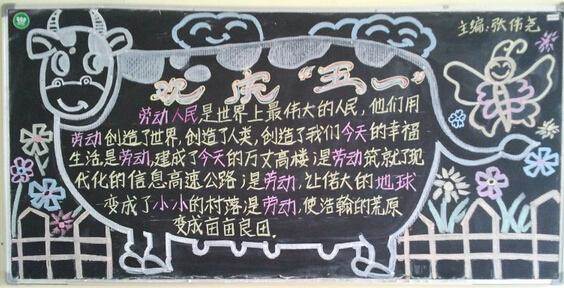 主编:张伟尧
欢庆“五一”
劳动人民是世界上最伟大的人民,他们用
劳动创造了世界,创造了人类,创造了我们今天的幸福
生活是劳动,建成了今天的万丈高楼;是劳动筑就了现
代化的信息高速公路;是劳动,让偌大的地球
变成了小小的村落;是劳动,使浩瀚的荒原
变成亩亩良田.